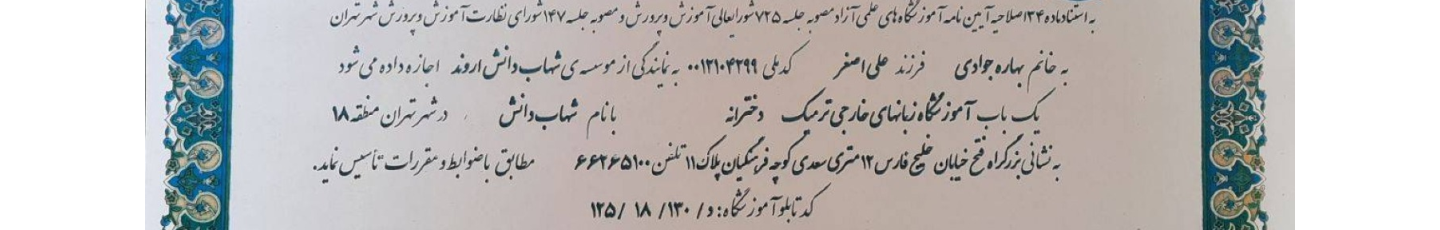 به استناد ماده ۱۳۴ اصلاحیه آیین نامه آموزشگاه های علمی آزاد مصوبه جلسه ۷۲۵ شورایعالی آموزش و پرورش و مصوبه جلسه ۱۴۷ شورای نظارت آموزش و پرورش شهر تهران
به خانم بهاره جوادی فرزند علی اصغر کد ملی ۰۰۱۲۱۰۴۲۹۹ به نمایندگی از موسسه ی شهاب دانش اروند اجازه داده می شود
یک باب آموزشگاه زبانهای خارجی ترمیک دخترانه با نام شهاب دانش در شهر تهران منطقه ۱۸
به نشانی بزرگراه فتح خیابان خلیج فارس ۱۲ متری سعدی کوچه فرهنگیان پلاک ۱۱ تلفن ۶۶۲۶۵۱۰۰ مطابق با ضوابط و مقررات تأسیس نماید.
کد تابلو آموزشگاه: د / ۱۳۰ / ۱۸ / ۱۲۵